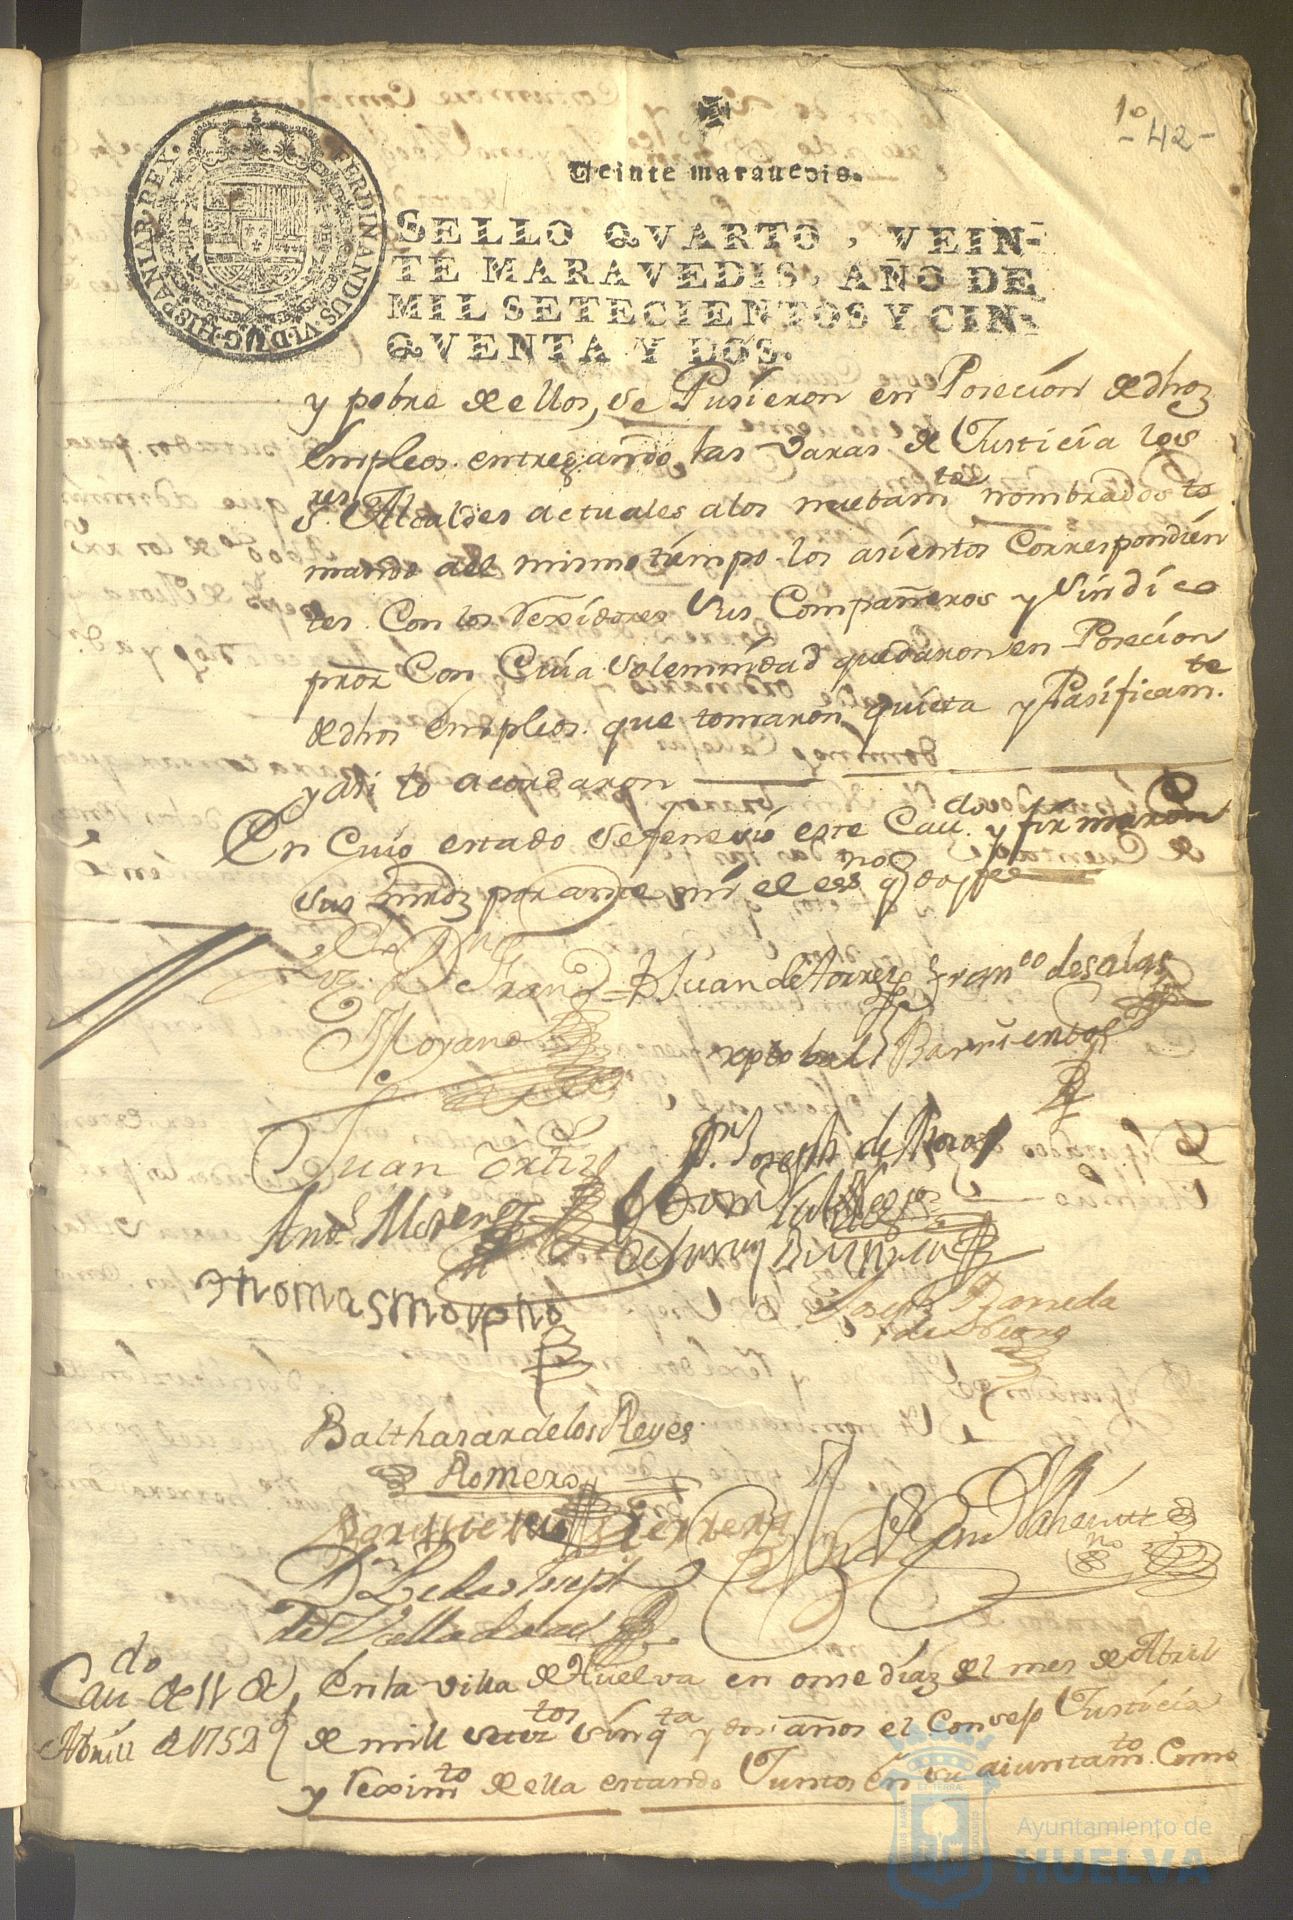 1º
- 42 -
Veinte maravedis.
FERDINANDUS·VI·D·G·HISPANIAR·REX·
SELLO QVARTO, VEIN-
TE MARAVEDIS, AÑO DE
MIL SETECIENTOS Y CIN-
QVENTA Y DOS.
y pobre de ellos, se Pusieron en Poseción de dhoz
Empleos. entregando las varas de Justicia los
Sres. Alcaldes actuales alos nuebamte nombrados to
mando al mismo tiempo los asientos Correspondien
tes Con los Rexidores sus Compañeros y Síndico
pror Con Cuia Solemnidad quedaron en Poseción
de dhos empleos que tomaron quieta y Pasificamte
y asi lo acordaron
En Cuio estado se feneció este Caudo y firmaron
sus mrdz por ante mi el essno q doy fee
Juan de Torres Franco de salas
Moyano
xptobal Barrientos
Juan Ortiz
Dn Joseph de Mora
Anto Moreno
Thomas morpho
Joseph Raneda
Balthasar de los Reyes
Romero
de Valladares
Caudo de 11 de
Abrill de 1752
En la villa de Huelva en onse díaz del mes de Abril
de mill setectos sinqta y dos años el Consejo Justicia
y Reximto de ella estando Juntos en su aiuntamto Como
Ayuntamiento de
HUELVA